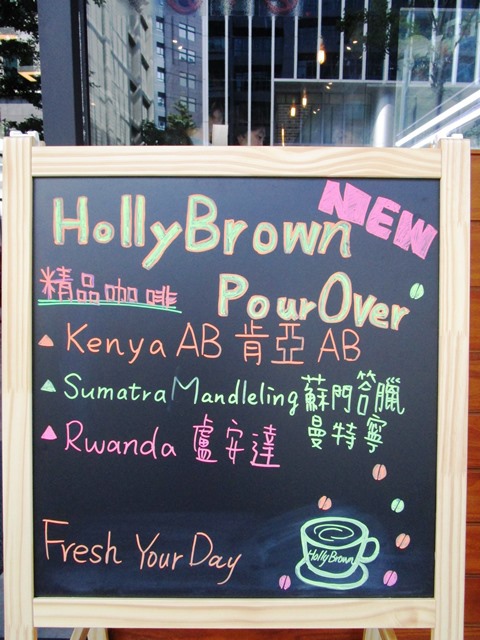 HollyBrown NEW
精品咖啡 PourOver
Kenya AB 肯亞 AB
Sumatra Mandleling 蘇門答臘
曼特寧
Rwanda 盧安達
Fresh Your Day
HollyBrown